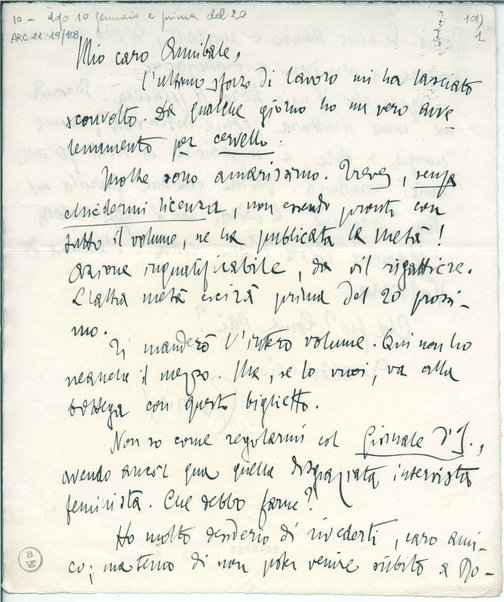 10 - dopo 10 gennaio e prima del 20
ARC 21. 19/108,
101)
1
Mio caro Annibale,
l'ultimo sforzo di lavoro mi ha lasciato
sconvolto. Da qualche giorno ho un vero avve
lenamento per cervello.
Inoltre sono amarissimo. Treves, senza
chiedermi licenza, non essendo pronto con
tutto il volume, ne ha pubblicata la metà!
Azione inqualificabile, da vil rigattiere.
L'altra metà escirà prima del 20 prossi-
mo.
Ti manderò l'intero volume. Qui non ho
neanche il mezzo. Ma, se lo vuoi, va alla
bottega con questo biglietto.
Non so come regolarmi col Giornale d'I.,
avendo ancor qua quella disgraziata intervista
feminista. Che debbo farne?
Ho molto desiderio di rivederti, caro ami-
co; ma temo di non poter venire subito a Ro-